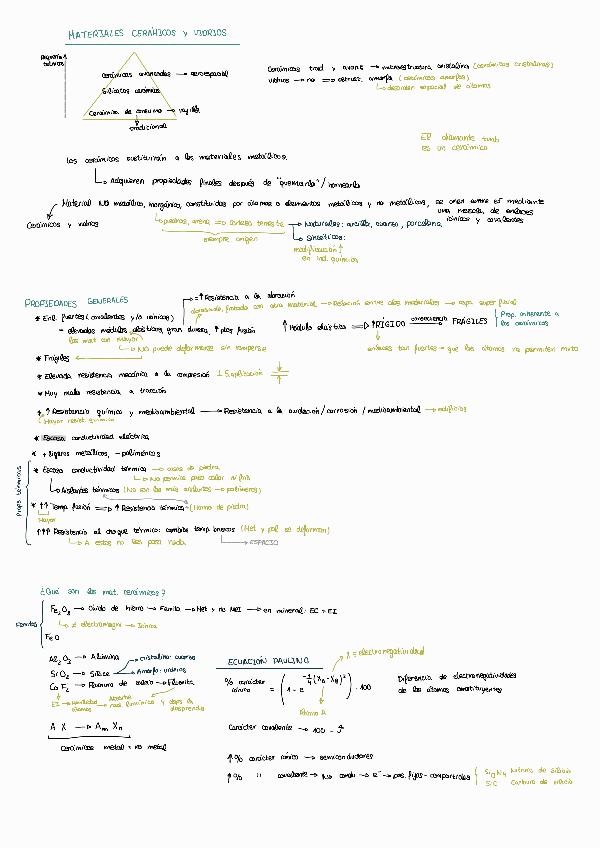 MATERIALES CERÁMICOS Y VIDRIOS
Cerámicos avanzados → aeroespacial
Silicatos cerámicos
Cerámica de consumo → vajilla
tradicional
Cerámicos trad y avanz → microestructura cristalina (cerámicos cristalinos)
vidrios → no => estruct. amorfa (cerámicos amorfos)
desorden espacial de átomos
El diamante tamb
es un cerámico
Los cerámicos sustituirán a los materiales metálicos.
Adquieren propiedades finales después de "quemarlo" / hornearlo
Material NO metálico, inorgánico, constituidos por átomos o elementos metálicos y no metálicos, se unen entre sí mediante
una mezcla de enlaces
iónicos y covalentes
Cerámicos y vidrios
piedras, arena => corteza terrestre
siempre origen
Naturales: arcilla, cuarzo, porcelana
Sintéticos:
modificación
en ind. química
PROPIEDADES GENERALES
↑ Resistencia a la abrasión
desgaste, frotado con otro material → Relación entre dos materiales → capa superficial
* Enl. fuertes (covalentes y/o iónicos)
- elevados módulos elásticos, gran dureza, ↑ ptos fusión
(los mat con mayor)
No puede deformarse sin romperse
↑ Módulo elástico => ↑ RÍGIDO FRÁGILES
Prop. inherente a
los cerámicos
enlaces tan fuertes → que los átomos no permiten mvto
* Frágiles
* Elevada resistencia mecánica a la compresión
* Muy mala resistencia a tracción
* ↑ Resistencia química y medioambiental → Resistencia a la oxidación / corrosión / medioambiental → edificios
(Mayor resist. química)
* Escasa conductividad eléctrica
* + ligeros metálicos, - poliméricos
Props térmicas
* Escasa conductividad térmica → casas de piedra
No permite paso calor ni frío
Aislantes térmicos (No son los más aislantes → polímeros)
* ↑↑ Temp fusión => ↑ Resistencia térmica (Horno de piedra)
Mayor
↑↑↑ Resistencia al choque térmico: cambios temp. bruscos (Met y pol se deforman)
A estos no les pasa nada
ESPACIO
¿Qué son los mat. cerámicos?
Ferritas
Fe₂O₃ → Óxido de hierro → Ferrita → Met y no Met → en mineral: EC + EI
≠ electronegat → Iónico
FeO
Al₂O₃ → Alúmina
SiO₂ → Sílice
Cristalino: cuarzo
Amorfo: vidrios
CaF₂ → Fluoruro de calcio → Fluorita
A X → Aₘ Xₙ
Cerámicos metal + no metal
ECUACIÓN PAULING
X = electronegatividad
% carácter iónico = (1 - e^(-¼(Xₐ - X_B)²)) · 100
Átomo A
Diferencia de electronegatividades
de los átomos constituyentes
Carácter covalente → 100 -
↑ % carácter iónico → semiconductores
↑ % " covalente → No condu → e⁻ → pos. fijas - compartidos
Si₃N₄ Nitruro de silicio
SiC Carburo de silicio